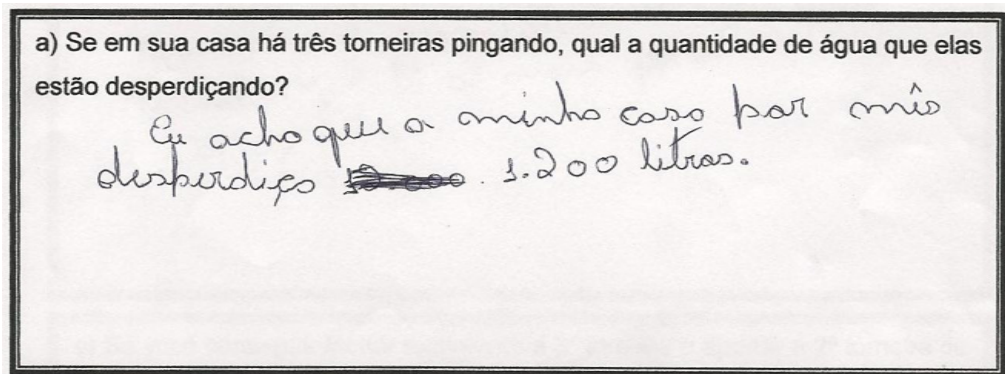 a) Se em sua casa há três torneiras pingando, qual a quantidade de água que elas
estão desperdiçando?
Eu acho que a minha casa por mês
desperdiça 1.200 litros.